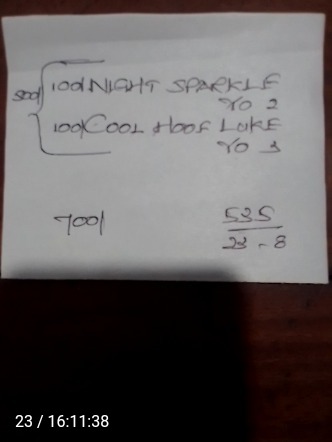 500/
100/ NIGHT SPARKLE
YO 2
100/ COOL HOOF LUKE
YO 3
700/
535
23-8
23 / 16:11:38